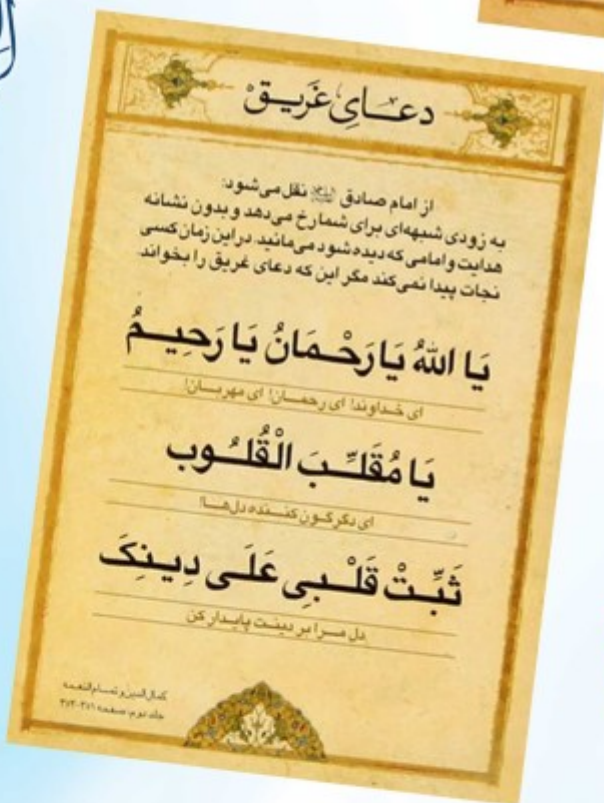 دعای غریق
از امام صادق نقل می‌شود:
به زودی شبهه‌ای برای شما رخ می‌دهد و بدون نشانه
هدایت و امامی که دیده شود می‌مانید. در این زمان کسی
نجات پیدا نمی‌کند مگر این که دعای غریق را بخواند.
يَا اللهُ يَا رَحْمَانُ يَا رَحِيمُ
ای خداوند! ای رحمان! ای مهربان!
يَا مُقَلِّبَ الْقُلُوبِ
ای دگرگون کننده دل‌ها!
ثَبِّتْ قَلْبِي عَلَى دِينِكَ
دل مرا بر دینت پایدار کن
کمال الدین و تمام النعمه
جلد دوم، صفحه